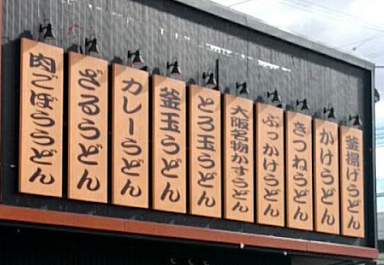 肉ごぼううどん
ざるうどん
カレーうどん
釜玉うどん
とろ玉うどん
大阪名物かすうどん
ぶっかけうどん
きつねうどん
かけうどん
釜揚げうどん